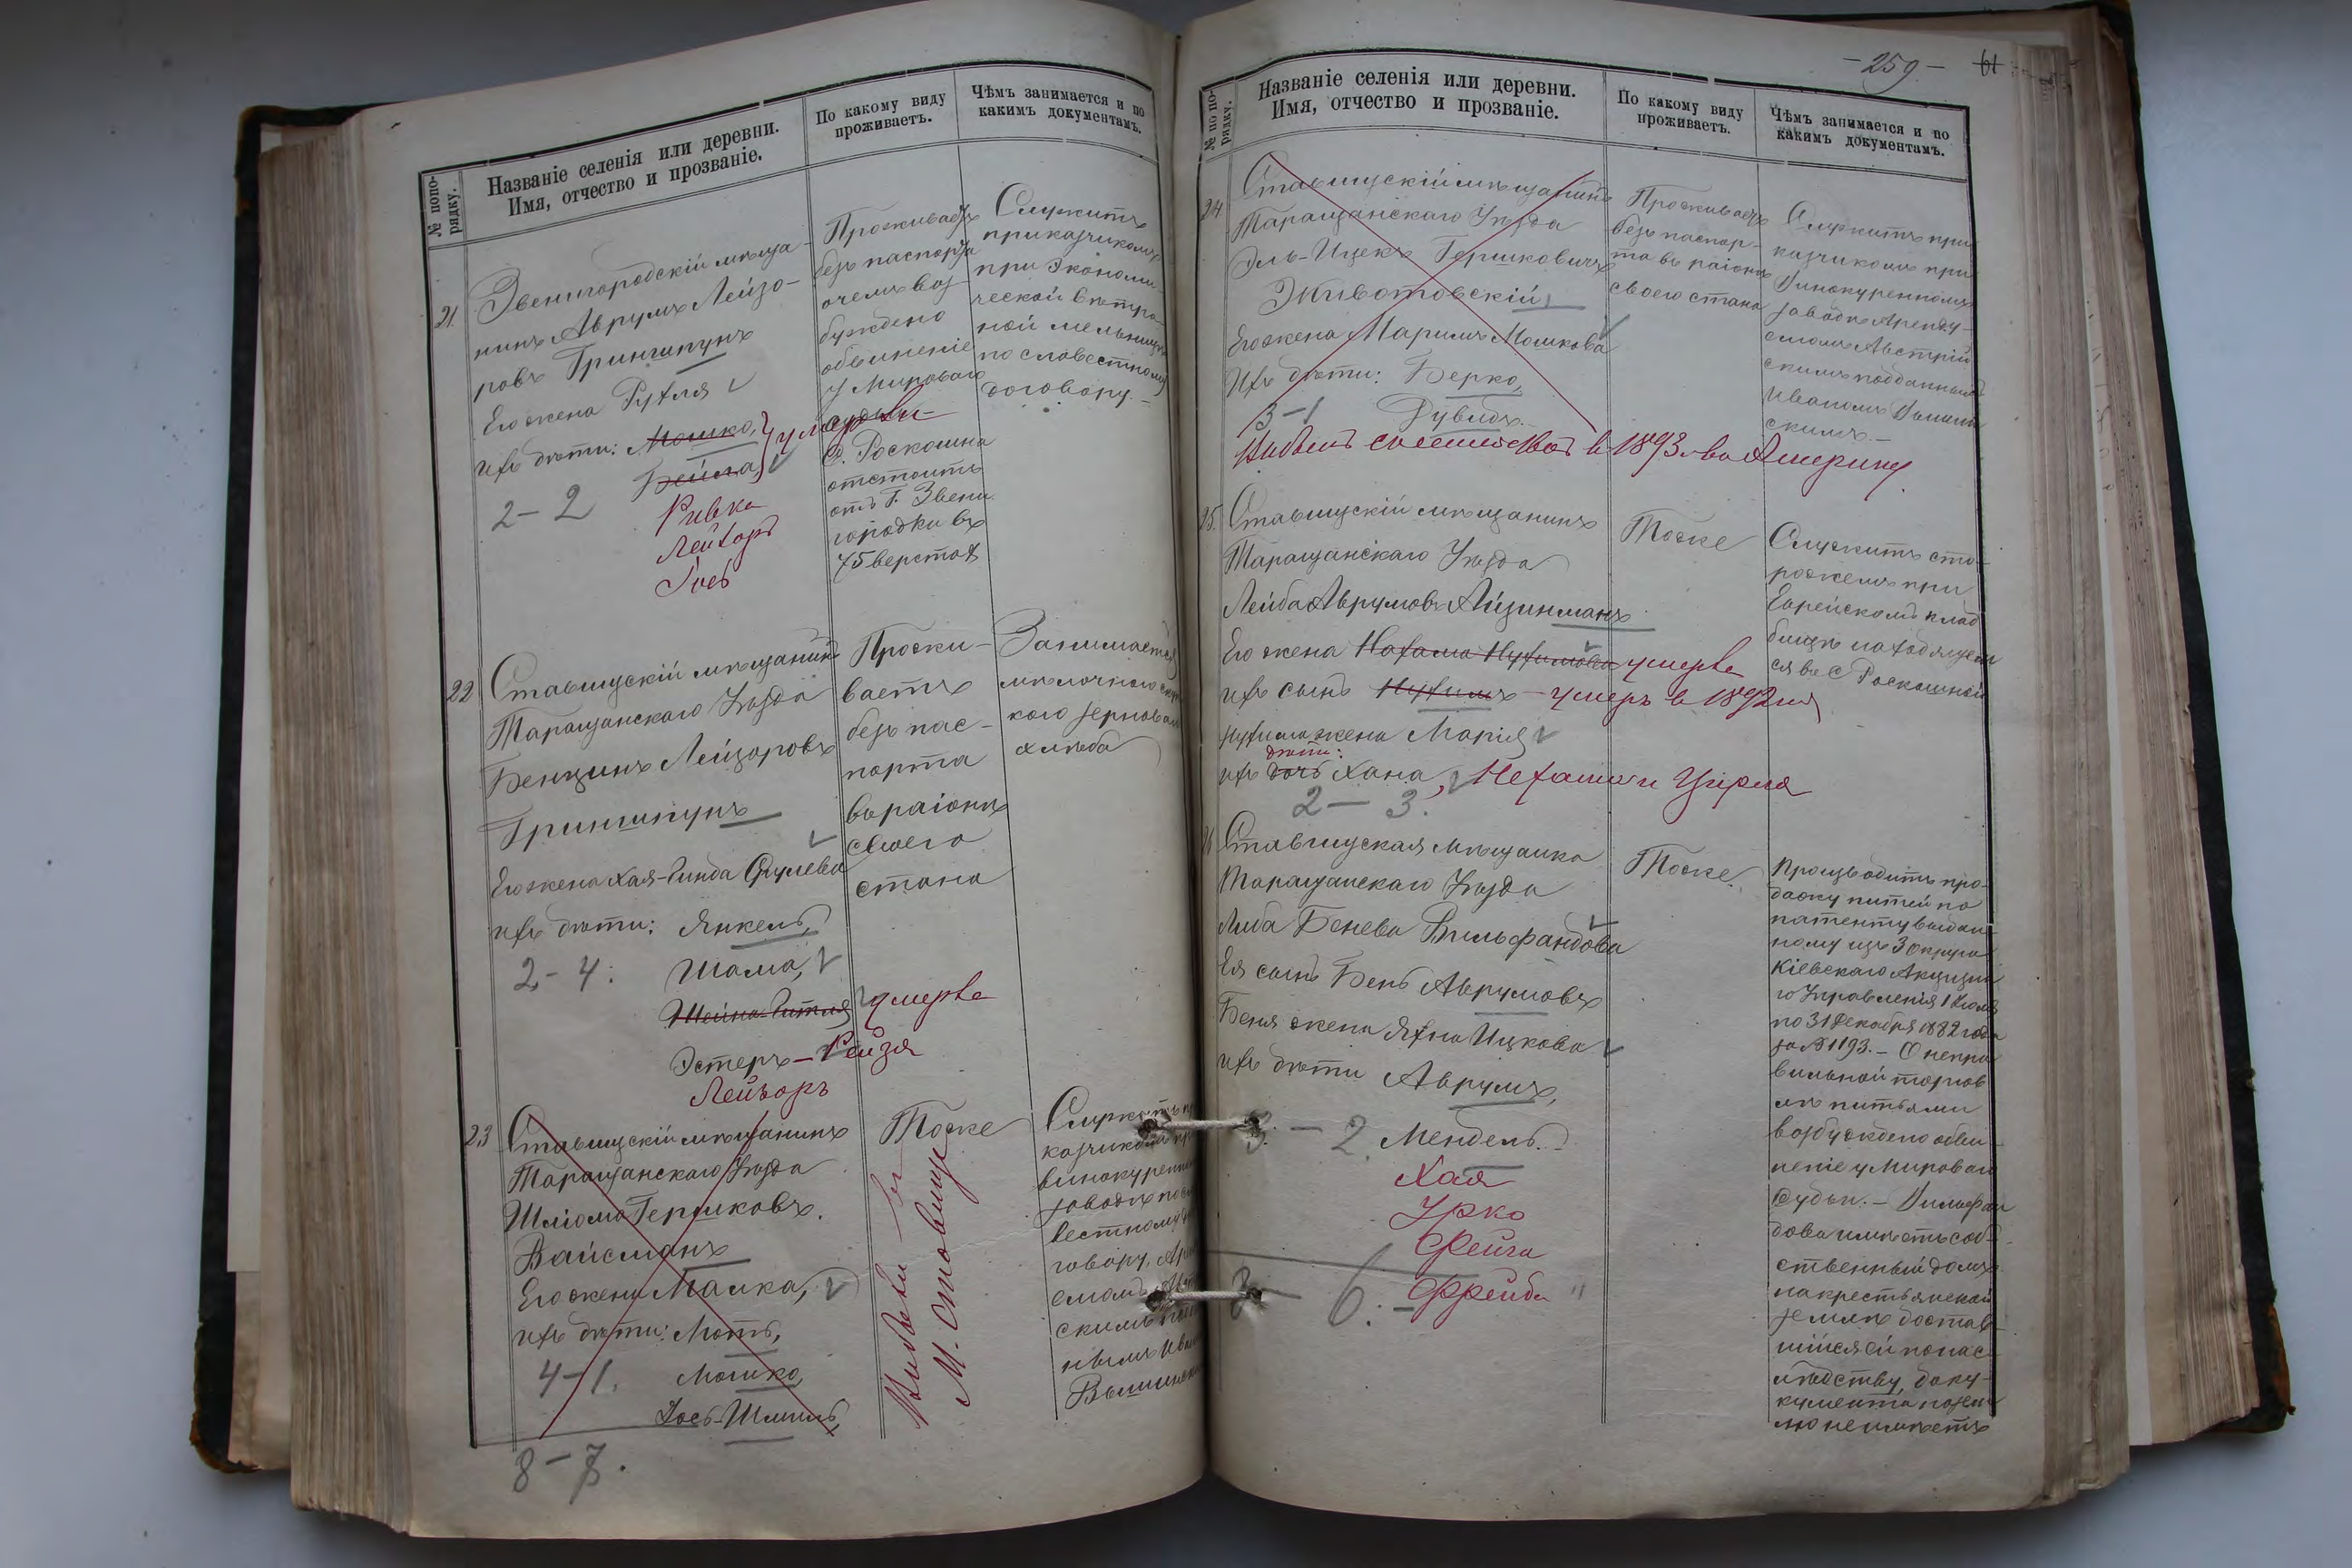 № по по-
рядку.
Названіе селенія или деревни.
Имя, отчество и прозваніе.
По какому виду
проживаетъ.
Чѣмъ занимается и по
какимъ документамъ.
21
Звенигородскій мѣща-
нинъ Аврумъ Лейзо-
ровъ Гриншпунъ
Его жена Рухля
ихъ дѣти: Мошко, умерли
Бейла,
2-2
Ривка
Лейзоръ
Іось
Проживаетъ
безъ паспорта
о чемъ воз-
буждено
обвиненіе
у Мироваго
Судьи
С. Роскошна
отстоитъ
отъ г. Звени
городки въ
75 верстах
Служитъ
приказчикомъ
при экономи-
ческой
ной мельницѣ
по словестному
договору.-
22
Ставищскій мѣщанинъ
Таращанскаго Уѣзда
Бенционъ Лейзоровъ
Гриншпунъ
Его жена Хая-Гинда
ихъ дѣти: Янкель,
2-4.
Шама,
Шейна-Гитля умерла
Эстеръ - Рейзя
Лейзоръ
Прожи-
ваетъ
безъ пас-
порта
въ раіонѣ
своего
стана
Занимается
кого зерноваго
хлѣба
23
Ставищскій мѣщанинъ
Таращанскаго Уѣзда
Шліома Гершковъ
Вайсманъ
Его жена Малка,
ихъ дѣти: Моть,
4-1.
Мошко,
Іось-Шмиль,
8-7.
Тоже
Выбыли въ
м. Ставище
Служитъ
казчикомъ
винокуренн
заводѣ
вестному
говору,
скимъ
нымъ
-259- 61
№ по по-
рядку.
Названіе селенія или деревни.
Имя, отчество и прозваніе.
По какому виду
проживаетъ.
Чѣмъ занимается и по
какимъ документамъ.
24
Ставищскій мѣщанинъ
Таращанскаго Уѣзда
Эль-Ицекъ Гершковичъ
Животовскій
Его жена Маримъ Мошкова
Ихъ дѣти: Берко,
3-1
Дувидъ.
Выбылъ съ семействомъ въ 1893 г. въ Америку
Проживаетъ
безъ паспор-
та въ раіонѣ
своего стана
Служитъ при
казчикомъ при
Винокуренномъ
заводѣ Аренду-
емомъ Австрій
скимъ подданнымъ
Иваномъ
скимъ.-
25.
Ставищскій мѣщанинъ
Таращанскаго Уѣзда
Лейба Аврумовъ Айзинманъ
Его жена Нехама Нухимова умерла
ихъ сынъ Нухимъ - умеръ в 1892 г.
Нухима жена Марія
дѣти:
ихъ дочь Хана, Нехама и Цирля
2-3.
Тоже
Служитъ сто-
рожемъ при
Еврейскомъ клад
бищѣ находящем
ся въ с Роскошной
26
Ставищская мѣщанка
Таращанскаго Уѣзда
Либа Бенева Вильфандова
Ея сынъ Бень Аврумовъ
Беня жена Яхна Ицкова
ихъ дѣти Аврумъ,
3-2. Мендель.-
Хая
Урко
Фейга
3-6. - Фрейда "
Тоже.
Производитъ про-
дажу питей по
патенту выдан-
ному изъ 3 округа
Кіевскаго Акцизна
го Управленія 1 Іюля
по 31 Декабря 1882 года
за № 1193.- О непра
вильной торгов
лѣ питьями
возбуждено обви-
неніе у Мироваго
Судьи.- Вильфан
дова имѣетъ соб-
ственный домъ
на крестьянской
землѣ достав-
шійся ей по нас-
лѣдству, доку-
мента на зем
лю не имѣетъ